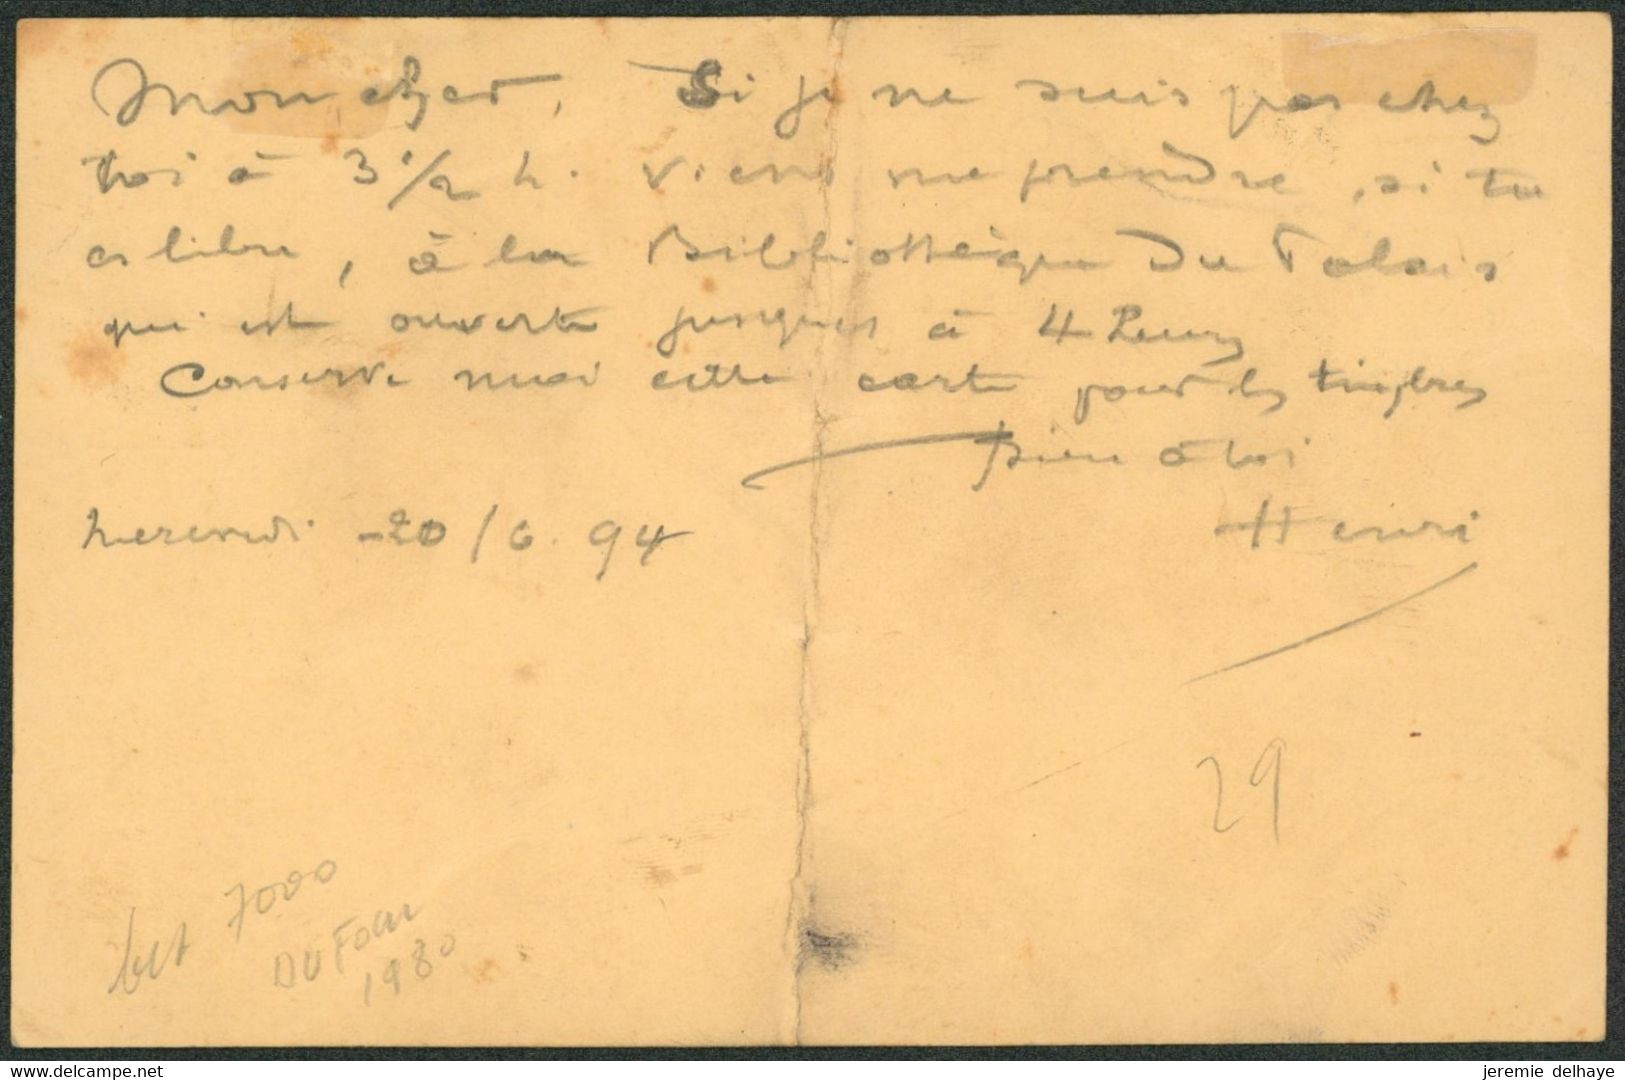 Mon cher, Si je ne suis pas chez
toi à 3 1/2 h. viens me prendre, si tu
es libre, à la Bibliothèque du Palais
qui est ouverte jusques à 4 heures
Conserve moi cette carte pour les timbres
bien à toi
Mercredi - 20/6.94 Henri
29
7000
DUFOUR
1980
jeremie delhaye